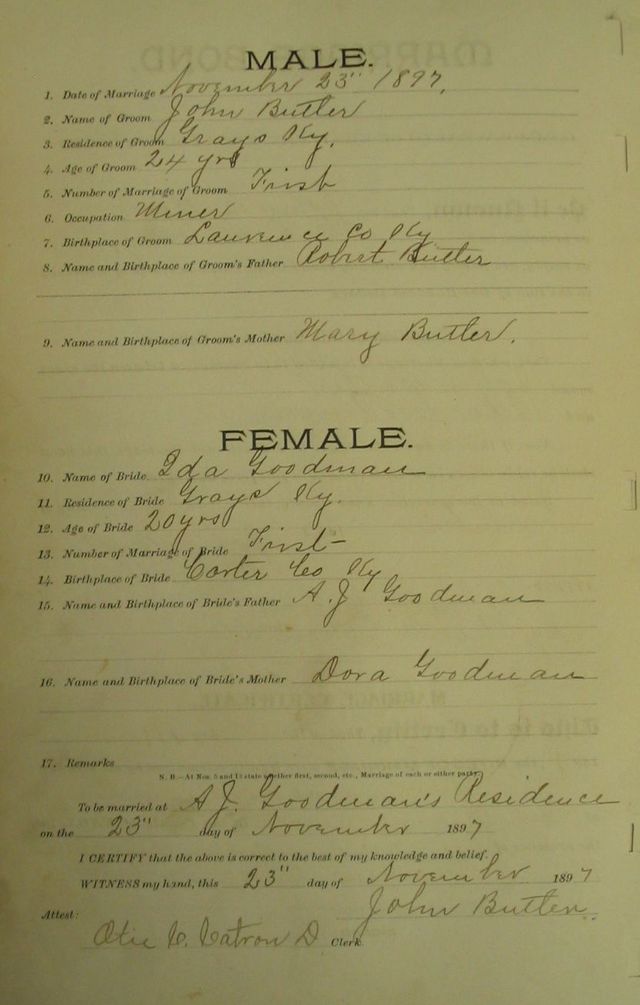 MALE.
1. Date of Marriage November 23" 1897.
2. Name of Groom John Butler
3. Residence of Groom Grays Ky.
4. Age of Groom 24 yrs
5. Number of Marriage of Groom First
6. Occupation Miner
7. Birthplace of Groom Laurence Co Ky
8. Name and Birthplace of Groom's Father Robert Butler
9. Name and Birthplace of Groom's Mother Mary Butler.
FEMALE.
10. Name of Bride Ida Goodman
11. Residence of Bride Grays Ky.
12. Age of Bride 20 yrs
13. Number of Marriage of Bride First
14. Birthplace of Bride Carter Co Ky
15. Name and Birthplace of Bride's Father A. J Goodman
16. Name and Birthplace of Bride's Mother Dora Goodman
17. Remarks
N. B.—At Nos. 5 and 13 state whether first, second, etc., Marriage of each or either party.
To be married at A. J. Goodman's Residence
on the 23" day of November 1897
I CERTIFY that the above is correct to the best of my knowledge and belief.
WITNESS my hand, this 23" day of November 1897
John Butler.
Attest:
C. Catron D Clerk